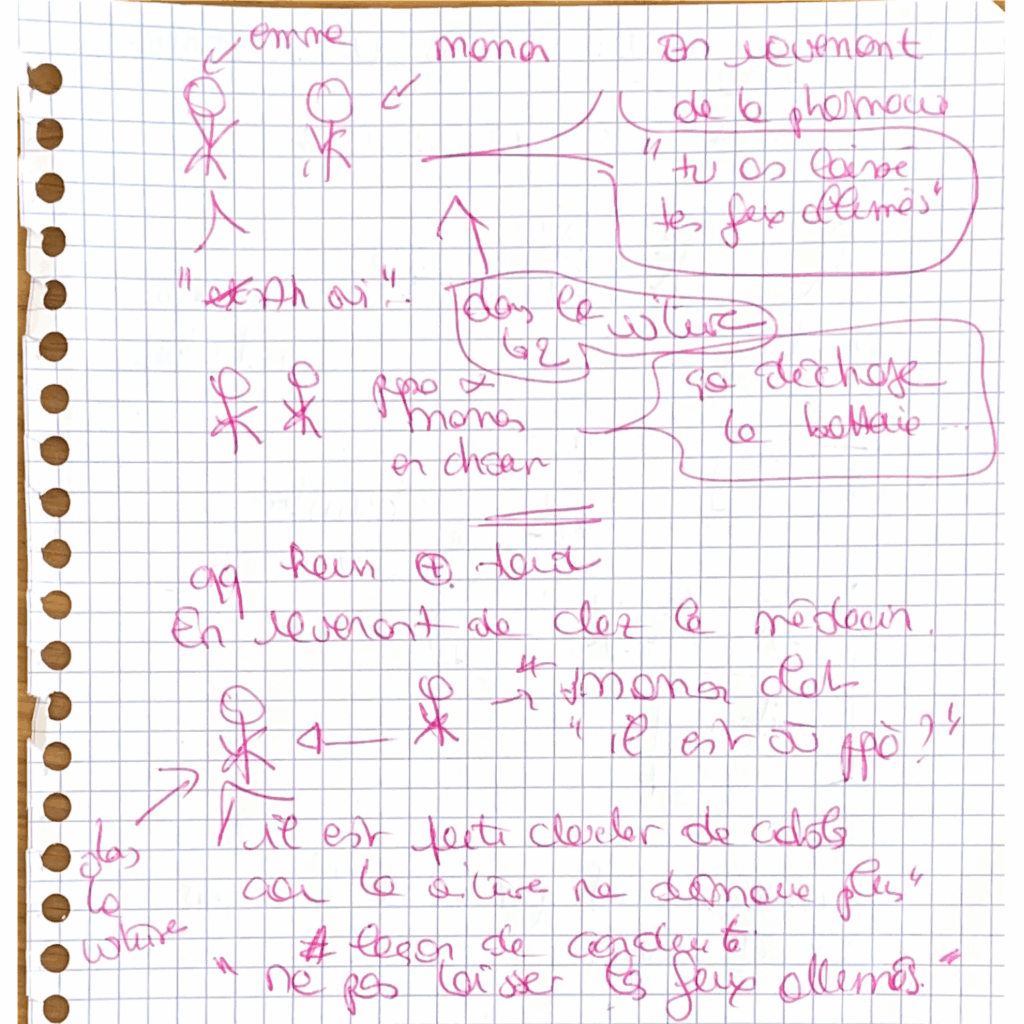 emme
maman
En revenant
de la pharmacie
"tu as laissé
tes feux allumés"
"Ah oui".
dans la voiture
papa &
maman
en chœur
ça décharge
la batterie...
qq heures ⊕ tard
En revenant de chez le médecin.
maman dit
"il est où papa?"
"il est parti chercher de
car la voiture ne démarre plus"
dans
la
voiture
# leçon de conduite
"ne pas laisser les feux allumés."